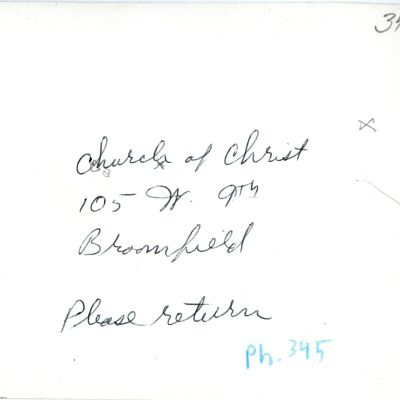 Church of Christ
105 W. 9th
Broomfield
Please return
Ph. 345